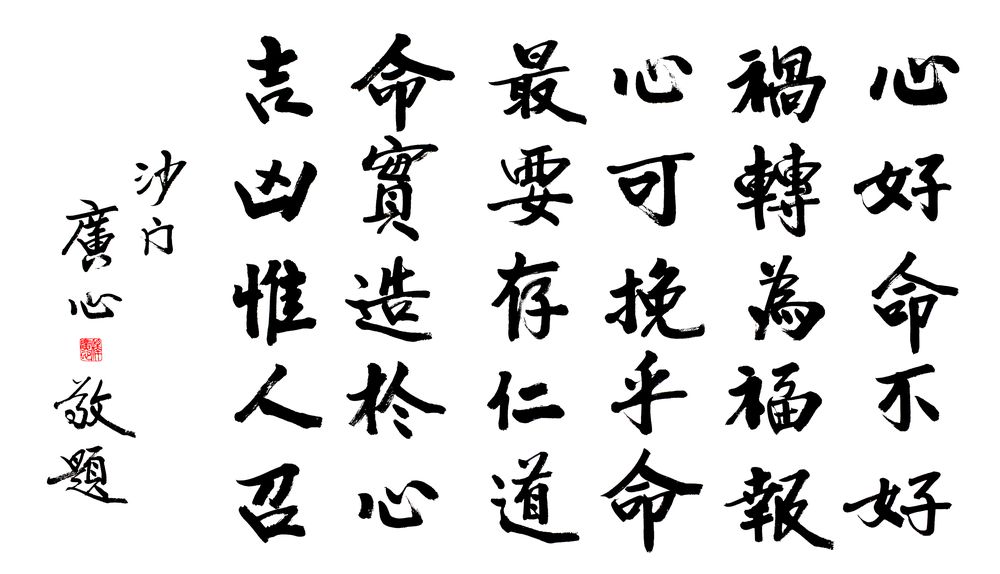 心好命不好
禍轉為福報
心可挽乎命
最要存仁道
命實造於心
吉凶惟人召
沙门
廣心
敬題